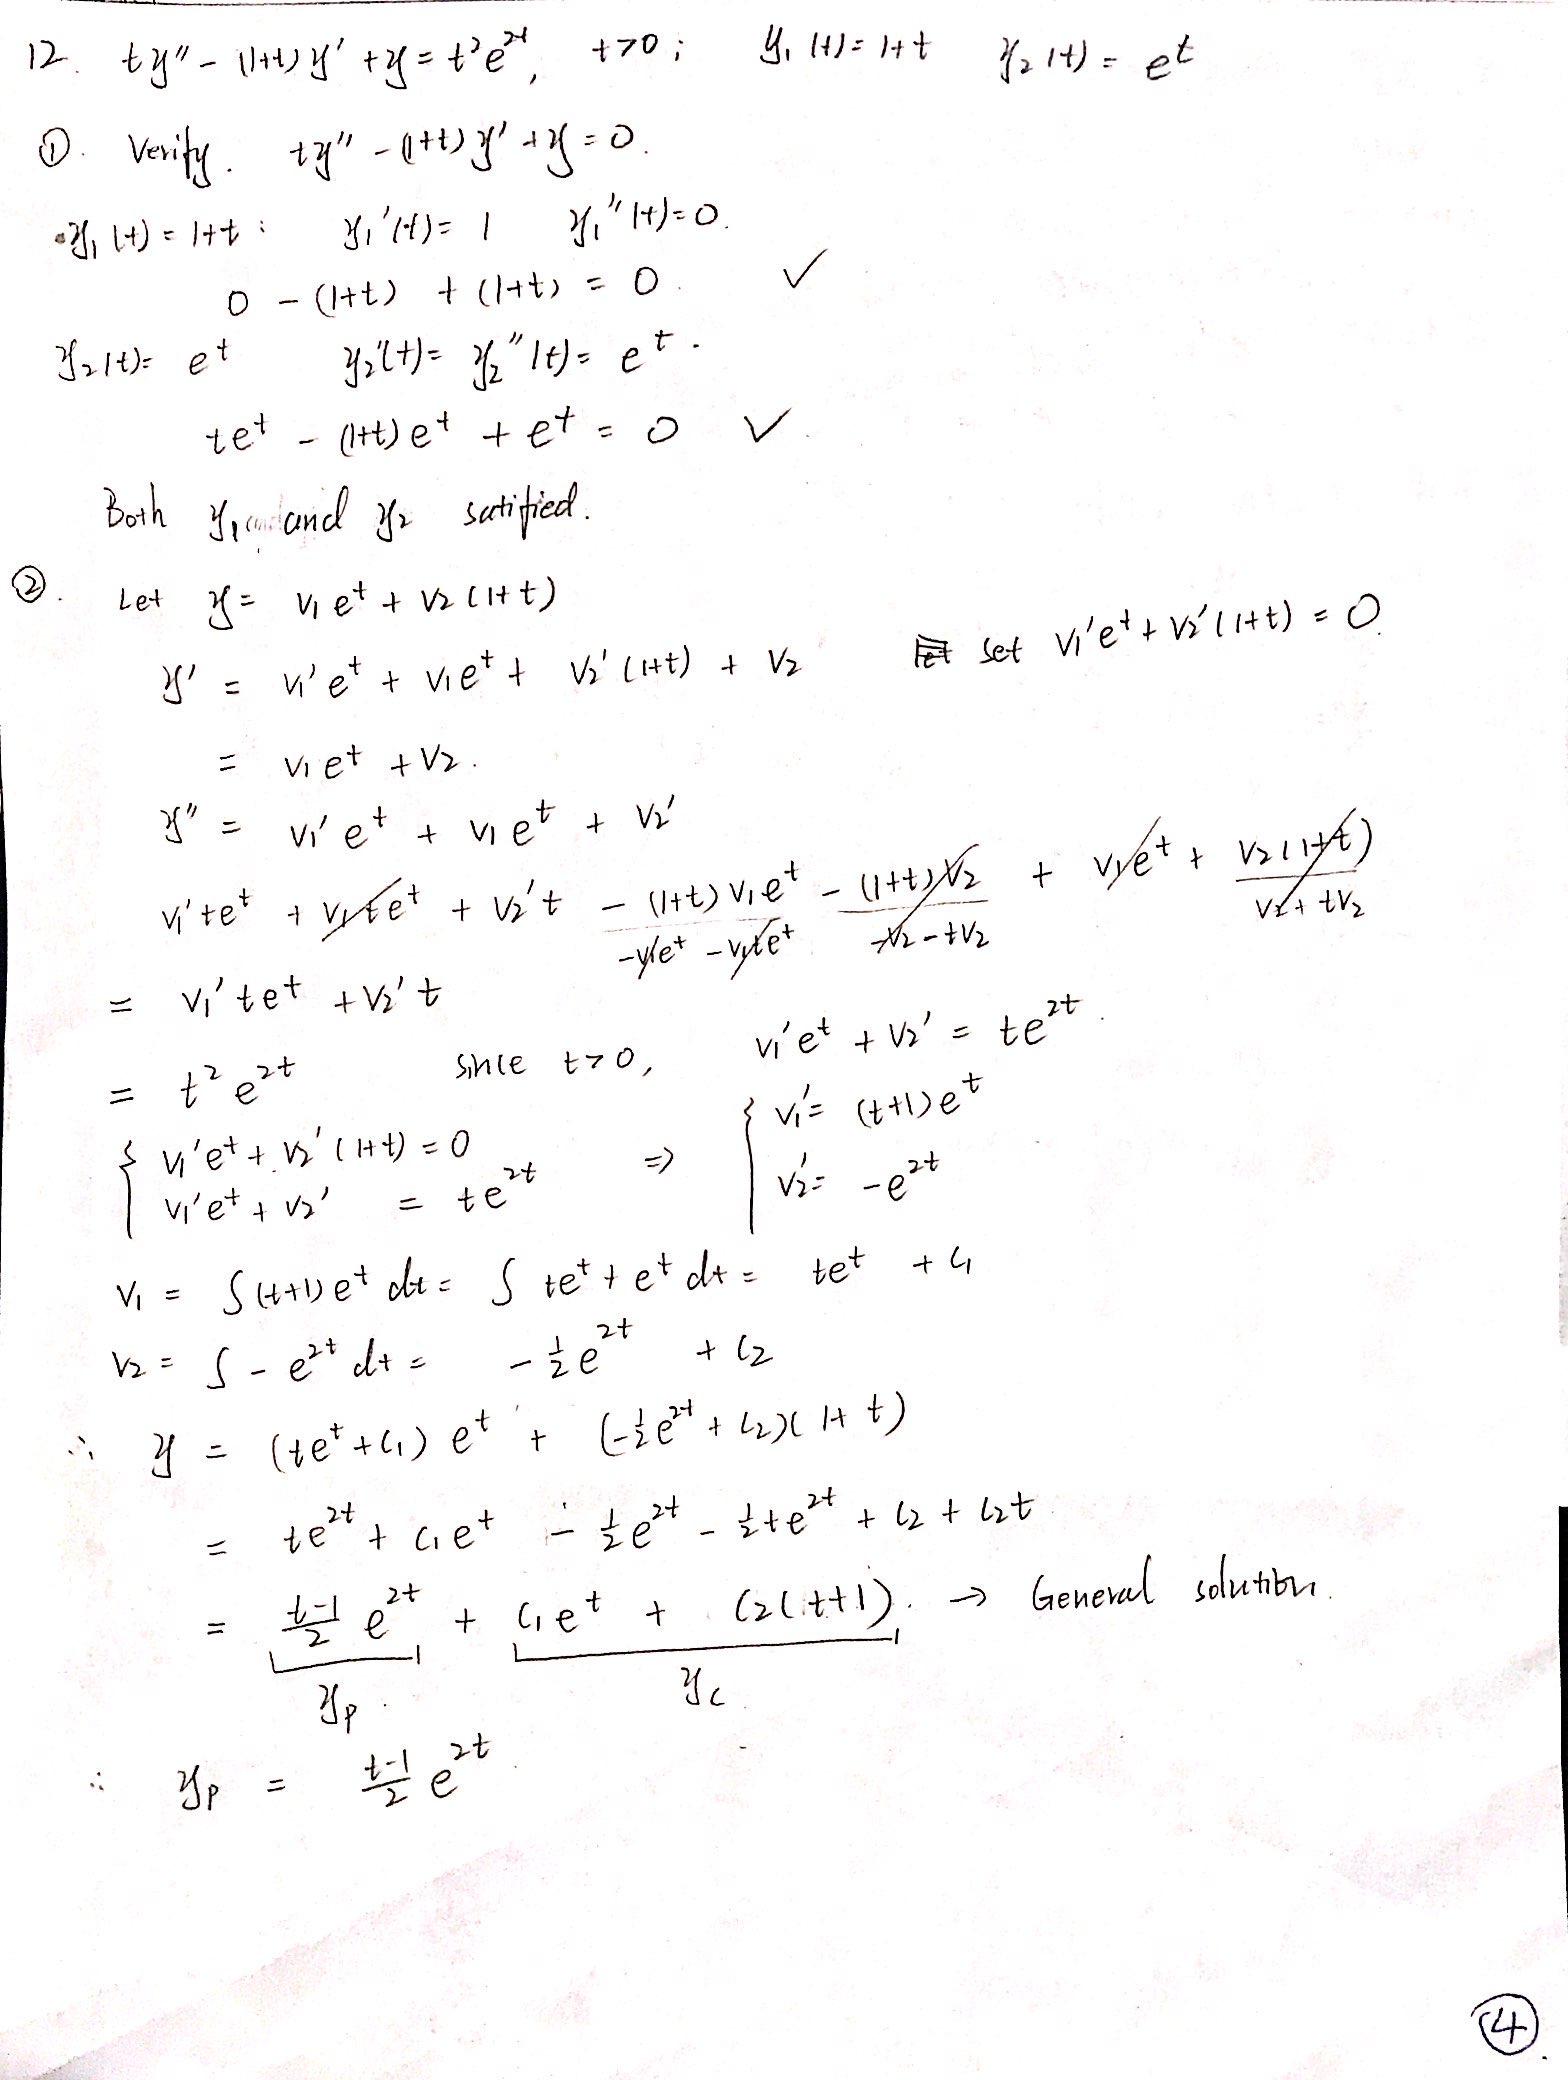 12. ty'' - (1+t)y' + y = t²e^{2t}, t>0; y₁(t) = 1+t y₂(t) = e^t
①. Verify. ty'' - (1+t)y' + y = 0.
y₁(t) = 1+t : y₁'(t) = 1 y₁''(t) = 0.
0 - (1+t) + (1+t) = 0. ✓
y₂(t) = e^t y₂'(t) = y₂''(t) = e^t.
te^t - (1+t)e^t + e^t = 0 ✓
Both y₁ and y₂ satified.
②. Let y = v₁e^t + v₂(1+t)
y' = v₁'e^t + v₁e^t + v₂'(1+t) + v₂ set v₁'e^t + v₂'(1+t) = 0.
= v₁e^t + v₂.
y'' = v₁'e^t + v₁e^t + v₂'
v₁'te^t + v₁te^t + v₂'t - (1+t)v₁e^t - (1+t)v₂ + v₁e^t + v₂(1+t)
-v₁e^t - v₁te^t -v₂ - tv₂ v₂ + tv₂
= v₁'te^t + v₂'t
= t²e^{2t} since t>0, v₁'e^t + v₂' = te^{2t}.
{ v₁'e^t + v₂'(1+t) = 0 ⇒ { v₁' = (t+1)e^t
v₁'e^t + v₂' = te^{2t} v₂' = -e^{2t}
v₁ = ∫(t+1)e^t dt = ∫ te^t + e^t dt = te^t + c₁
v₂ = ∫ -e^{2t} dt = -½e^{2t} + c₂
∴ y = (te^t + c₁)e^t + (-½e^{2t} + c₂)(1+t)
= te^{2t} + c₁e^t - ½e^{2t} - ½te^{2t} + c₂ + c₂t
= \frac{t-1}{2} e^{2t} + c₁e^t + c₂(t+1). → General solution.
y_p. y_c
∴ y_p = \frac{t-1}{2} e^{2t}
④.